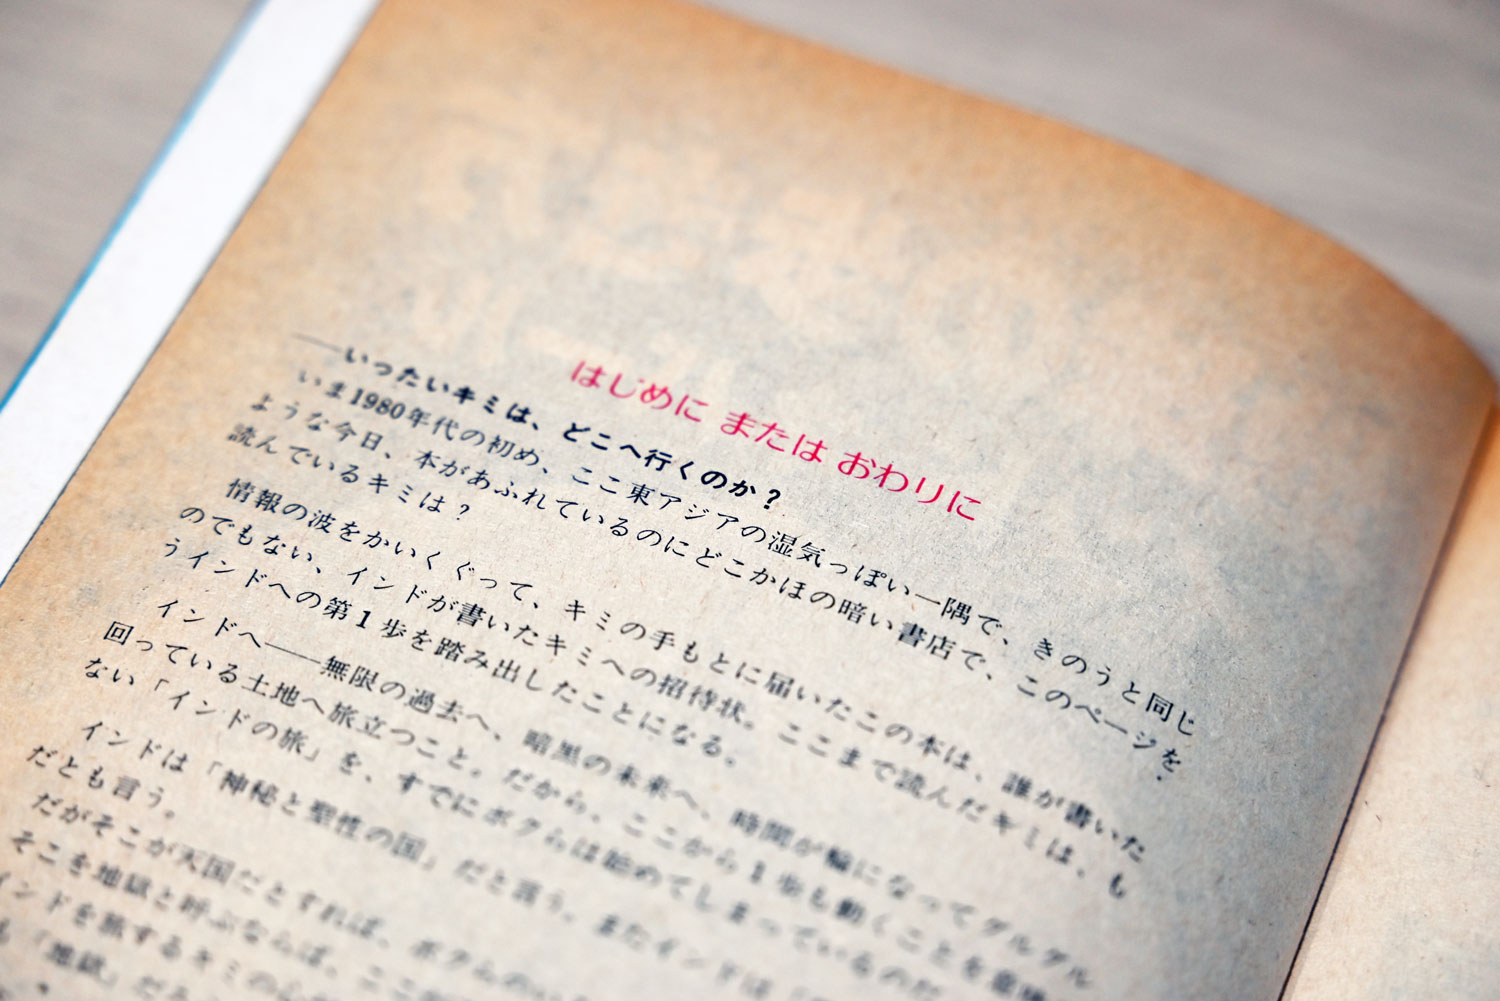 はじめに または おわりに
――いったいキミは、どこへ行くのか？
いま1980年代の初め、ここ東アジアの湿気っぽい一隅で、きのうと同じ
ような今日、本があふれているのにどこかほの暗い書店で、このページを、
読んでいるキミは？
情報の波をかいくぐって、キミの手もとに届いたこの本は、誰が書いた
のでもない、インドが書いたキミへの招待状。ここまで読んだキミは、も
うインドへの第1歩を踏み出したことになる。
インドへ――無限の過去へ、暗黒の未来へ、時間が輪になってグルグル
回っている土地へ旅立つこと。だから、ここから1歩も動くことを
ない「インドの旅」を、すでにボクらは始めてしまっているのだ
インドは「神秘と聖性の国」だと言う。またインドは
だとも言う。
だがそこが天国だとすれば、ボクらのい
そこを地獄と呼ぶならば、ここ
インドを旅するキミの心
「地獄」だ